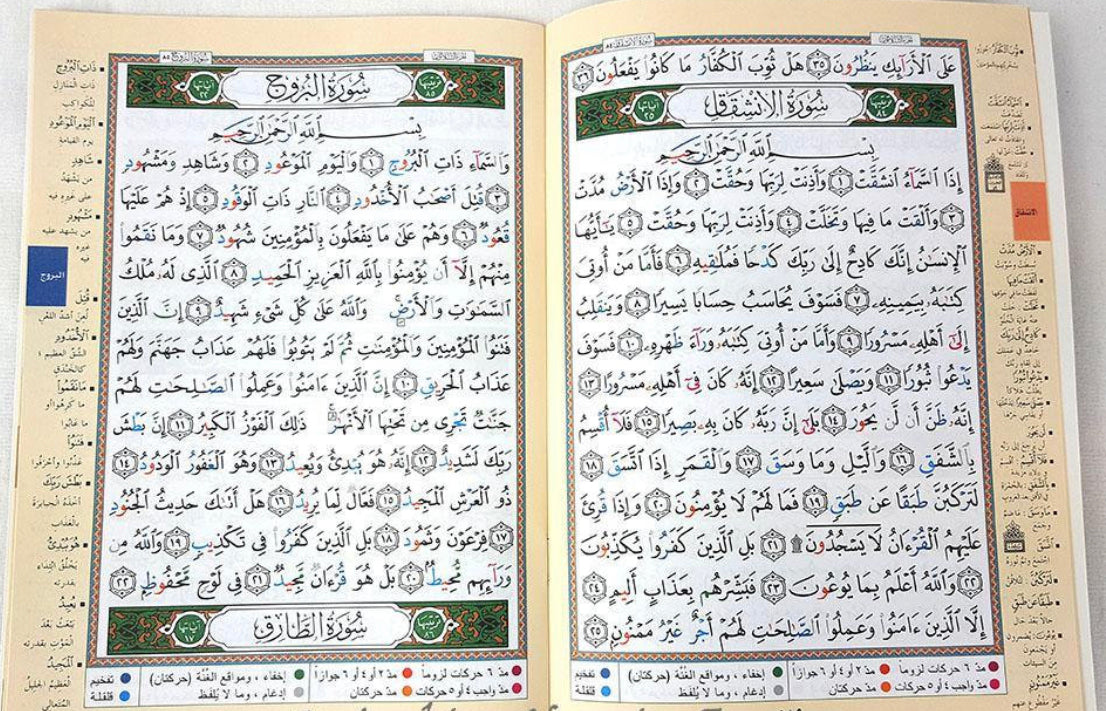 سورة الانشقاق ٨٤
الجزء الثلاثون
عَلَى ٱلْأَرَآئِكِ يَنظُرُونَ ٣٥ هَلْ ثُوِّبَ ٱلْكُفَّارُ مَا كَانُوا۟ يَفْعَلُونَ ٣٦
ترتيبها ٨٤ سُورَةُ الِانْشِقَاقِ آياتها ٢٥
بِسْمِ ٱللَّهِ ٱلرَّحْمَٰنِ ٱلرَّحِيمِ
إِذَا ٱلسَّمَآءُ ٱنشَقَّتْ ١ وَأَذِنَتْ لِرَبِّهَا وَحُقَّتْ ٢ وَإِذَا ٱلْأَرْضُ مُدَّتْ
٣ وَأَلْقَتْ مَا فِيهَا وَتَخَلَّتْ ٤ وَأَذِنَتْ لِرَبِّهَا وَحُقَّتْ ٥ يَٰٓأَيُّهَا
ٱلْإِنسَٰنُ إِنَّكَ كَادِحٌ إِلَىٰ رَبِّكَ كَدْحًا فَمُلَٰقِيهِ ٦ فَأَمَّا مَنْ أُوتِىَ
كِتَٰبَهُۥ بِيَمِينِهِۦ ٧ فَسَوْفَ يُحَاسَبُ حِسَابًا يَسِيرًا ٨ وَيَنقَلِبُ
إِلَىٰٓ أَهْلِهِۦ مَسْرُورًا ٩ وَأَمَّا مَنْ أُوتِىَ كِتَٰبَهُۥ وَرَآءَ ظَهْرِهِۦ ١٠ فَسَوْفَ
يَدْعُوا۟ ثُبُورًا ١١ وَيَصْلَىٰ سَعِيرًا ١٢ إِنَّهُۥ كَانَ فِىٓ أَهْلِهِۦ مَسْرُورًا ١٣
إِنَّهُۥ ظَنَّ أَن لَّن يَحُورَ ١٤ بَلَىٰٓ إِنَّ رَبَّهُۥ كَانَ بِهِۦ بَصِيرًا ١٥ فَلَآ أُقْسِمُ
بِٱلشَّفَقِ ١٦ وَٱلَّيْلِ وَمَا وَسَقَ ١٧ وَٱلْقَمَرِ إِذَا ٱتَّسَقَ ١٨
لَتَرْكَبُنَّ طَبَقًا عَن طَبَقٍ ١٩ فَمَا لَهُمْ لَا يُؤْمِنُونَ ٢٠ وَإِذَا قُرِئَ
عَلَيْهِمُ ٱلْقُرْءَانُ لَا يَسْجُدُونَ ۩ ٢١ بَلِ ٱلَّذِينَ كَفَرُوا۟ يُكَذِّبُونَ
٢٢ وَٱللَّهُ أَعْلَمُ بِمَا يُوعُونَ ٢٣ فَبَشِّرْهُم بِعَذَابٍ أَلِيمٍ ٢٤
إِلَّا ٱلَّذِينَ ءَامَنُوا۟ وَعَمِلُوا۟ ٱلصَّٰلِحَٰتِ لَهُمْ أَجْرٌ غَيْرُ مَمْنُونٍۭ ٢٥
مدّ ٦ حركات لزوماً مدّ ٢ أو ٤ أو ٦ جوازاً إخفاء ، ومواقع الغُنَّة (حركتان) تفخيم
مدّ واجب ٤ أو ٥ حركات مدّ حركتان إدغام ، وما لا يُلفَظ قلقلة
الانشقاق
سورة البروج ٨٥
الجزء الثلاثون
ترتيبها ٨٥ سُورَةُ البُرُوجِ آياتها ٢٢
بِسْمِ ٱللَّهِ ٱلرَّحْمَٰنِ ٱلرَّحِيمِ
وَٱلسَّمَآءِ ذَاتِ ٱلْبُرُوجِ ١ وَٱلْيَوْمِ ٱلْمَوْعُودِ ٢ وَشَاهِدٍ وَمَشْهُودٍ
٣ قُتِلَ أَصْحَٰبُ ٱلْأُخْدُودِ ٤ ٱلنَّارِ ذَاتِ ٱلْوَقُودِ ٥ إِذْ هُمْ عَلَيْهَا
قُعُودٌ ٦ وَهُمْ عَلَىٰ مَا يَفْعَلُونَ بِٱلْمُؤْمِنِينَ شُهُودٌ ٧ وَمَا نَقَمُوا۟
مِنْهُمْ إِلَّآ أَن يُؤْمِنُوا۟ بِٱللَّهِ ٱلْعَزِيزِ ٱلْحَمِيدِ ٨ ٱلَّذِى لَهُۥ مُلْكُ
ٱلسَّمَٰوَٰتِ وَٱلْأَرْضِ ۚ وَٱللَّهُ عَلَىٰ كُلِّ شَىْءٍ شَهِيدٌ ٩ إِنَّ ٱلَّذِينَ
فَتَنُوا۟ ٱلْمُؤْمِنِينَ وَٱلْمُؤْمِنَٰتِ ثُمَّ لَمْ يَتُوبُوا۟ فَلَهُمْ عَذَابُ جَهَنَّمَ وَلَهُمْ
عَذَابُ ٱلْحَرِيقِ ١٠ إِنَّ ٱلَّذِينَ ءَامَنُوا۟ وَعَمِلُوا۟ ٱلصَّٰلِحَٰتِ لَهُمْ
جَنَّٰتٌ تَجْرِى مِن تَحْتِهَا ٱلْأَنْهَٰرُ ۚ ذَٰلِكَ ٱلْفَوْزُ ٱلْكَبِيرُ ١١ إِنَّ بَطْشَ
رَبِّكَ لَشَدِيدٌ ١٢ إِنَّهُۥ هُوَ يُبْدِئُ وَيُعِيدُ ١٣ وَهُوَ ٱلْغَفُورُ ٱلْوَدُودُ ١٤
ذُو ٱلْعَرْشِ ٱلْمَجِيدُ ١٥ فَعَّالٌ لِّمَا يُرِيدُ ١٦ هَلْ أَتَىٰكَ حَدِيثُ ٱلْجُنُودِ
١٧ فِرْعَوْنَ وَثَمُودَ ١٨ بَلِ ٱلَّذِينَ كَفَرُوا۟ فِى تَكْذِيبٍ ١٩ وَٱللَّهُ مِن
وَرَآئِهِم مُّحِيطٌۢ ٢٠ بَلْ هُوَ قُرْءَانٌ مَّجِيدٌ ٢١ فِى لَوْحٍ مَّحْفُوظٍۭ ٢٢
ترتيبها ٨٦ سُورَةُ الطَّارِقِ آياتها ١٧
مدّ ٦ حركات لزوماً مدّ ٢ أو ٤ أو ٦ جوازاً إخفاء ، ومواقع الغُنَّة (حركتان) تفخيم
مدّ واجب ٤ أو ٥ حركات مدّ حركتان إدغام ، وما لا يُلفَظ قلقلة
ذَاتِ الْبُرُوجِ
ذات المنازل
للكواكب
الْيَوْمِ الْمَوْعُودِ
يوم القيامة
شَاهِدٍ
من يشهد
على غيره فيه
مَشْهُودٍ
من يشهد عليه
غيره
فيه
البروج
قُتِلَ
لُعِنَ أشدَّ اللعن
الْأُخْدُودِ
الشق العظيم ؛
كالخندق
مَا نَقَمُوا
ما كرهوا أو
ما عابوا
فَتَنُوا
عذّبوا وأحرقوا
بَطْشَ رَبِّكَ
أخذه الجبابرة
بالعذاب
هُوَ يُبْدِئُ
يخلق ابتداء
بقدرته
يُعِيدُ
يبعث بعد
الموت بقدرته
الْمَجِيدُ
العظيم الجليل
المتعالي